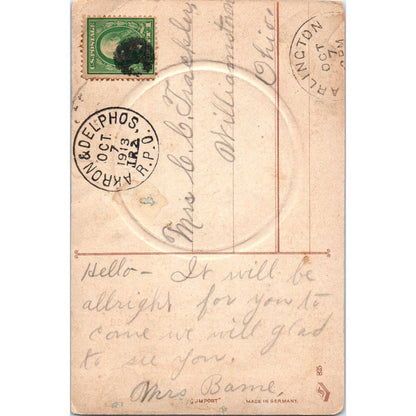 U.S. POSTAGE
AKRON & DELPHOS, O.
OCT
7
1913
TR2
R.P.O.
ARLINGTON
OCT
7
Mrs C. C. Trackler
Williamstown
Ohio
Hello - It will be
allright for you to
come we will glad
to see you.
Mrs Bame,
MADE IN GERMANY.